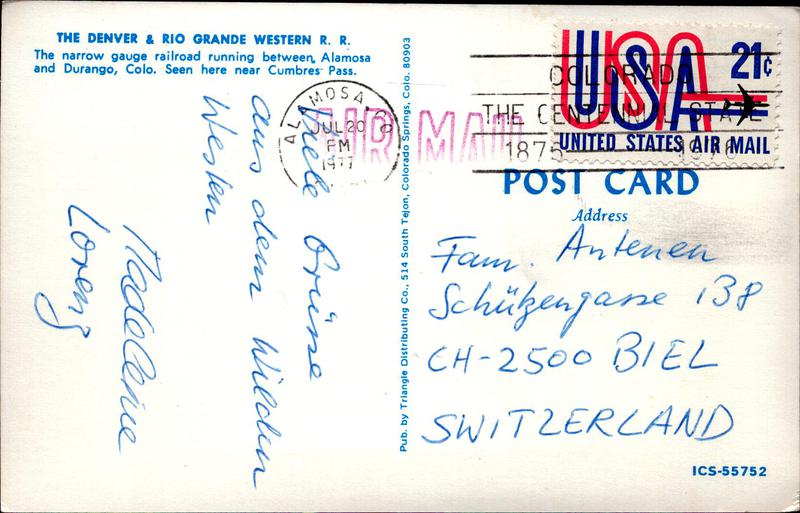 THE DENVER & RIO GRANDE WESTERN R. R.
The narrow gauge railroad running between, Alamosa
and Durango, Colo. Seen here near Cumbres Pass.
Viele Grüsse
aus dem Wilden
Westen
Madeleine
Lorenz
Pub. by Triangle Distributing Co., 514 South Tejon, Colorado Springs, Colo. 80903
ALAMOSA, CO
JUL 20
PM
1977
AIR MAIL
COLORADO
THE CENTENNIAL STATE
1876 1976
USA 21c
UNITED STATES AIR MAIL
POST CARD
Address
Fam. Antenen
Schützengasse 138
CH-2500 BIEL
SWITZERLAND
ICS-55752